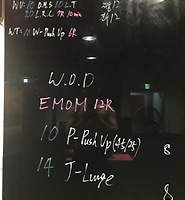 W.U: 10 O.H.S 10 L.T
20 L.R.C 3R 10min
WT: 10 W-Push Up 6R
W.O.D
EMOM 12R
10 P-Push Up
14 J-Lunge
8
8